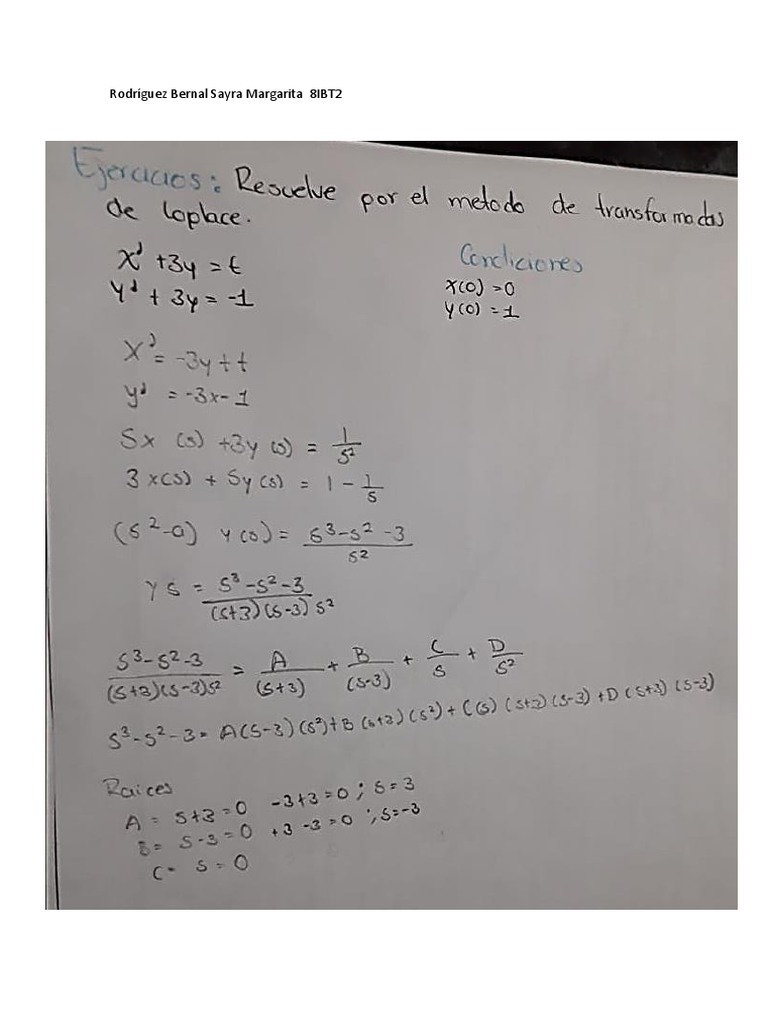 Rodríguez Bernal Sayra Margarita 8IBT2
Ejercicios: Resuelve por el metodo de transformadas
de laplace.
x' + 3y = t
y' + 3y = -1
Condiciones
x(0) = 0
y(0) = 1
x' = -3y + t
y' = -3x - 1
Sx (s) + 3y (s) = 1/s²
3 x(s) + Sy (s) = 1 - 1/s
(s² - a) y(s) = s³-s²-3 / s²
Y s = s³-s²-3 / (s+3)(s-3) s²
s³-s²-3 / (s+3)(s-3)s² = A/(s+3) + B/(s-3) + C/s + D/s²
s³-s²-3 = A(s-3)(s²) + B(s+3)(s²) + C(s)(s+3)(s-3) + D(s+3)(s-3)
Raices
A = s+3=0 -3+3=0 ; s=3
B= s-3=0 +3-3=0 ; s=-3
C= s=0